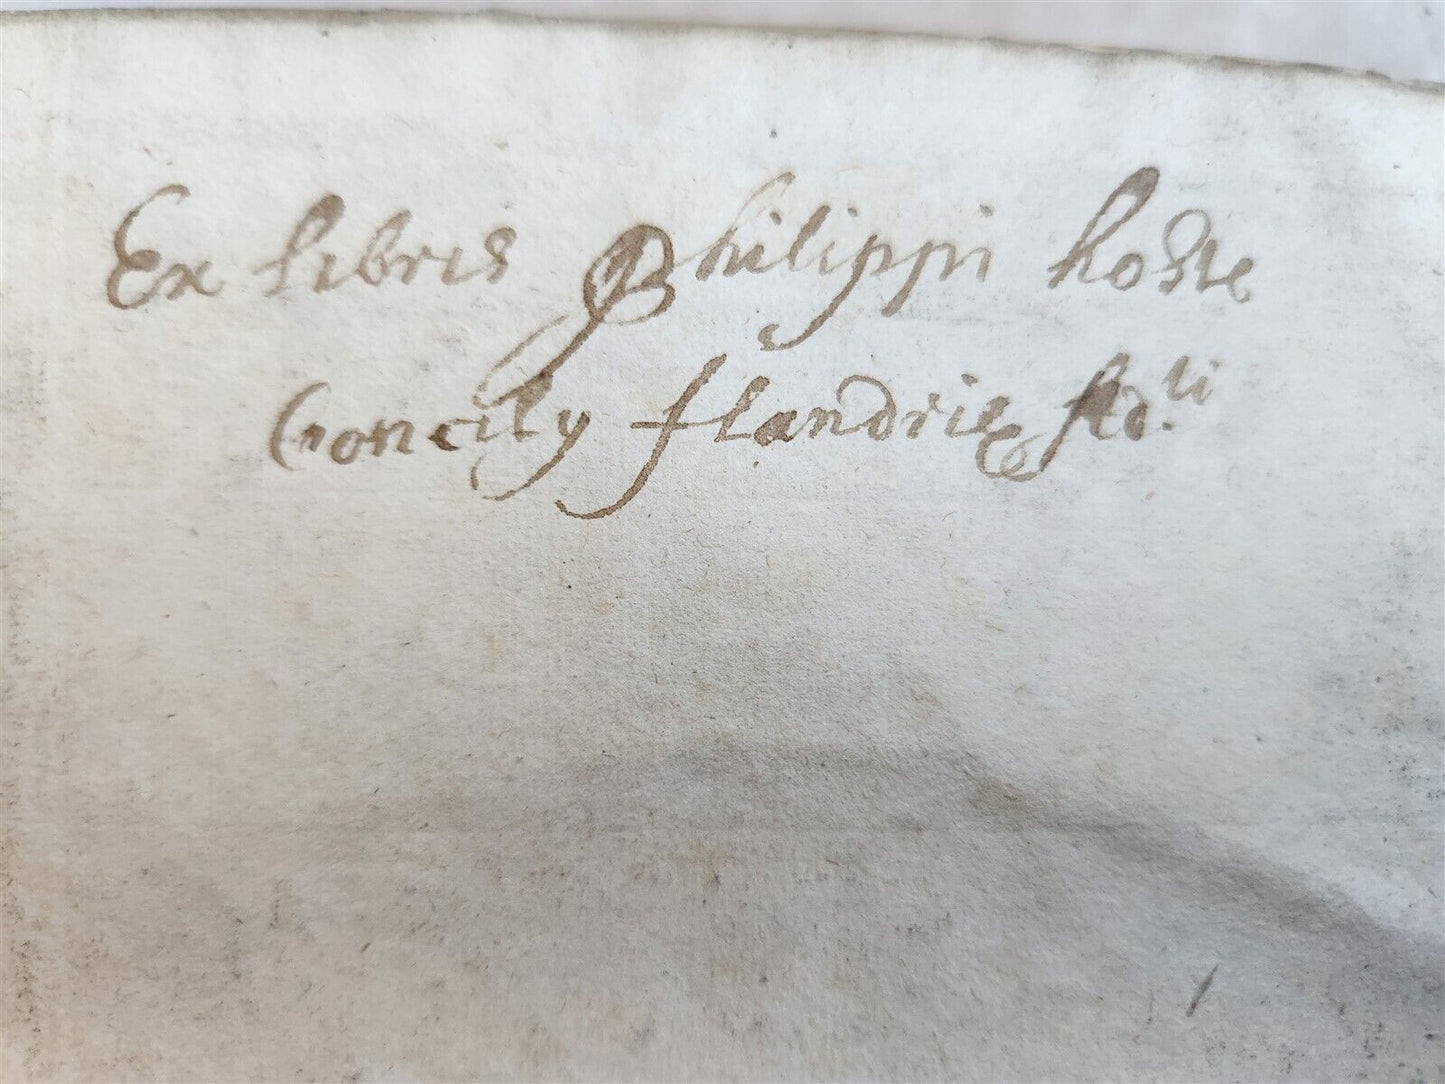 Ex libris Philippi hoste
Concily flandriæ Ad.ti